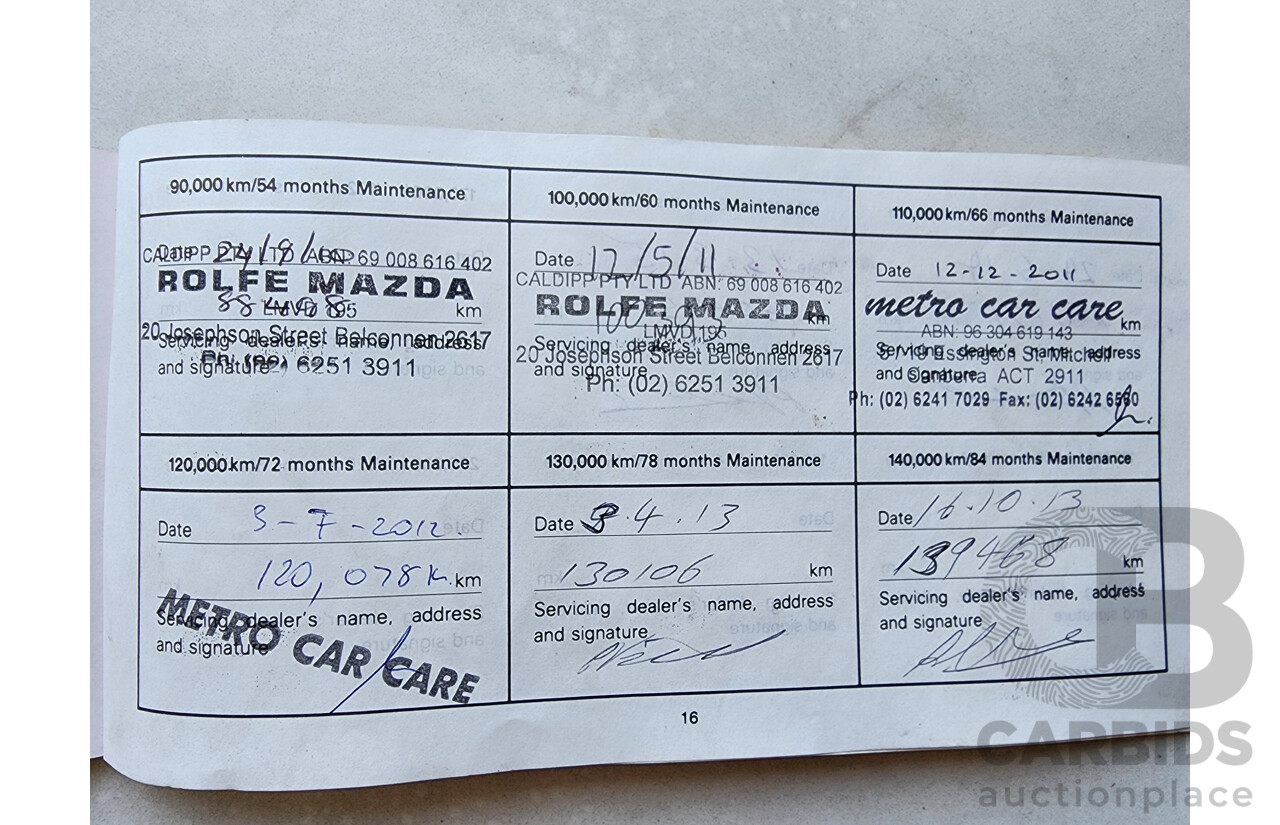 90,000 km/54 months Maintenance
Date 24/8/
CALDIPP PTY LTD ABN: 69 008 616 402
ROLFE MAZDA
km
20 Josephson Street Belconnen 2617
Servicing dealer's name, address
and signature
Ph: (02) 6251 3911
100,000 km/60 months Maintenance
Date 12/5/11
CALDIPP PTY LTD ABN: 69 008 616 402
ROLFE MAZDA
km
LMVD 195
Servicing dealer's name, address
20 Josephson Street Belconnen 2617
and signature
Ph: (02) 6251 3911
110,000 km/66 months Maintenance
Date 12-12-2011
metro car care
km
ABN: 96 304 619 143
Servicing dealer's name, address
Essington St, Mitchell
and signature
Canberra ACT 2911
Ph: (02) 6241 7029 Fax: (02) 6242
120,000 km/72 months Maintenance
Date 3-7-2012
120,078 K. km
Servicing dealer's name, address
and signature
METRO CAR CARE
130,000 km/78 months Maintenance
Date 3.4.13
130106 km
Servicing dealer's name, address
and signature
140,000 km/84 months Maintenance
Date 16.10.13
139468 km
Servicing dealer's name, address
and signature
16
CARBIDS
auctionplace